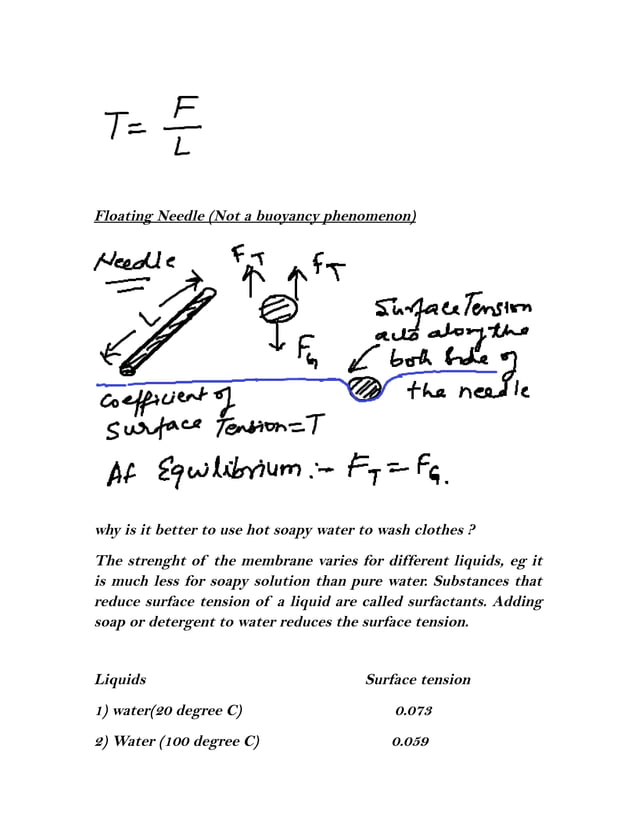 T = F / L
Floating Needle (Not a buoyancy phenomenon)
Needle
L
F_T F_T
F_G
Surface Tension
acts along the
both side of
the needle
Coefficient of
Surface Tension = T
At Equilibrium :- F_T = F_G.
why is it better to use hot soapy water to wash clothes ?
The strenght of the membrane varies for different liquids, eg it
is much less for soapy solution than pure water. Substances that
reduce surface tension of a liquid are called surfactants. Adding
soap or detergent to water reduces the surface tension.
Liquids Surface tension
1) water(20 degree C) 0.073
2) Water (100 degree C) 0.059